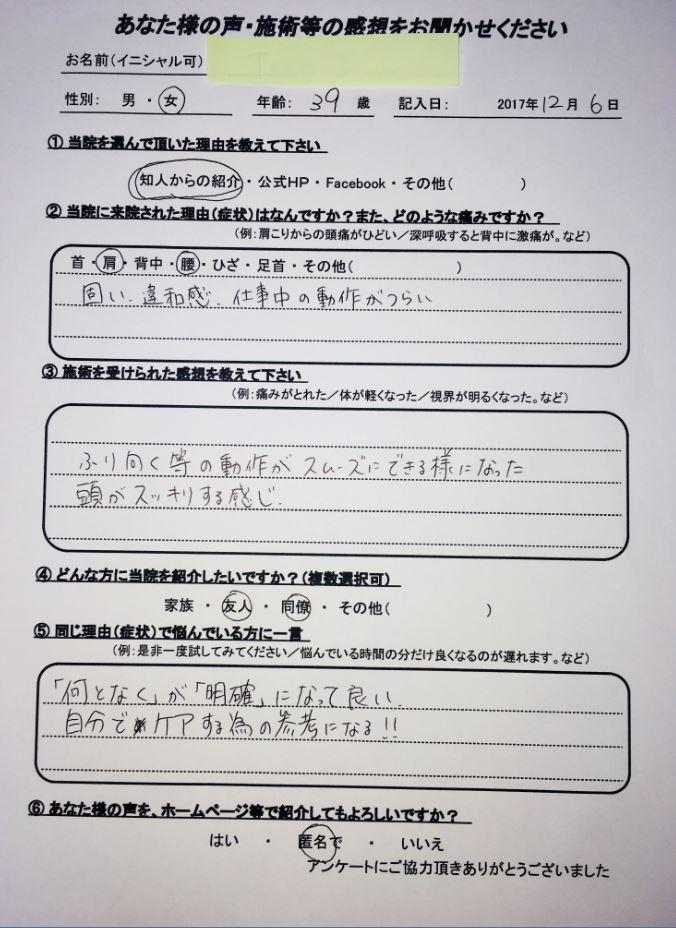 あなた様の声・施術等の感想をお聞かせください
お名前(イニシャル可)
性別: 男 ・ 女 年齢: 39 歳 記入日: 2017年12月6日
① 当院を選んで頂いた理由を教えて下さい
知人からの紹介・公式HP・Facebook・その他( )
② 当院に来院された理由(症状)はなんですか?また、どのような痛みですか?
(例:肩こりからの頭痛がひどい/深呼吸すると背中に激痛が。など)
首・肩・背中・腰・ひざ・足首・その他( )
固い、違和感、仕事中の動作がつらい
③ 施術を受けられた感想を教えて下さい
(例:痛みがとれた/体が軽くなった/視界が明るくなった。など)
ふり向く等の動作がスムーズにできる様になった
頭がスッキリする感じ.
④ どんな方に当院を紹介したいですか?(複数選択可)
家族 ・ 友人 ・ 同僚 ・ その他( )
⑤ 同じ理由(症状)で悩んでいる方に一言
(例:是非一度試してみてください/悩んでいる時間の分だけ良くなるのが遅れます。など)
「何となく」が「明確」になって良い.
自分でケアする為の参考になる!!
⑥ あなた様の声を、ホームページ等で紹介してもよろしいですか?
はい ・ 匿名で ・ いいえ
アンケートにご協力頂きありがとうございました